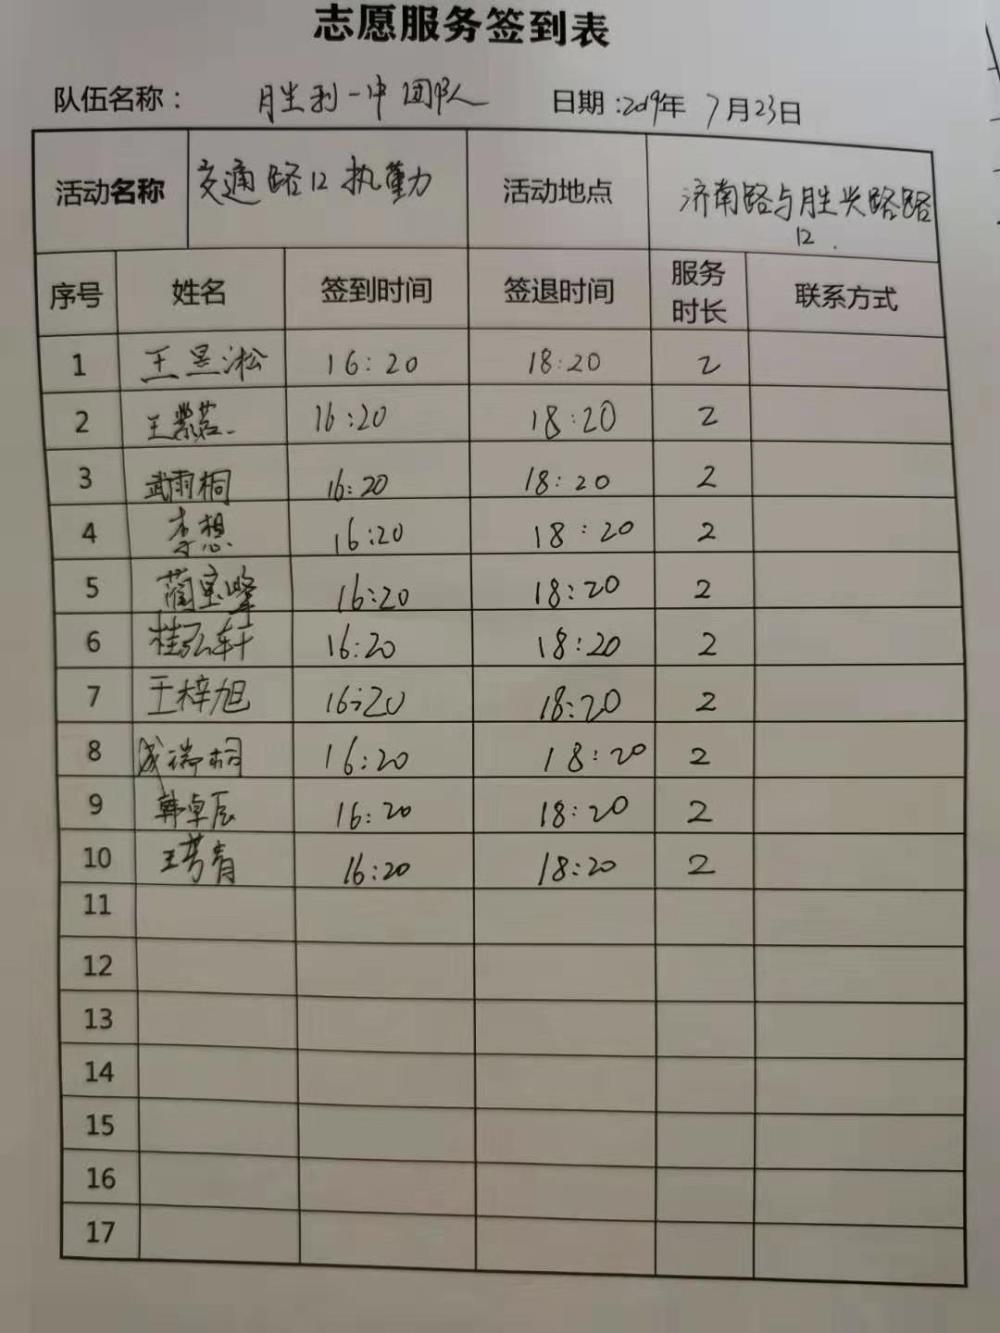 志愿服务签到表
队伍名称： 胜利一中团队 日期：2019年 7月23日
活动名称 交通路口执勤 活动地点 济南路与胜兴路路口.
序号 姓名 签到时间 签退时间 服务时长 联系方式
1 王昱淞 16:20 18:20 2
2 王紫茗 16:20 18:20 2
3 武雨桐 16:20 18:20 2
4 李想 16:20 18:20 2
5 蔺宝峰 16:20 18:20 2
6 桂弘轩 16:20 18:20 2
7 王梓旭 16:20 18:20 2
8 成瑞桐 16:20 18:20 2
9 韩卓辰 16:20 18:20 2
10 王青 16:20 18:20 2
11
12
13
14
15
16
17